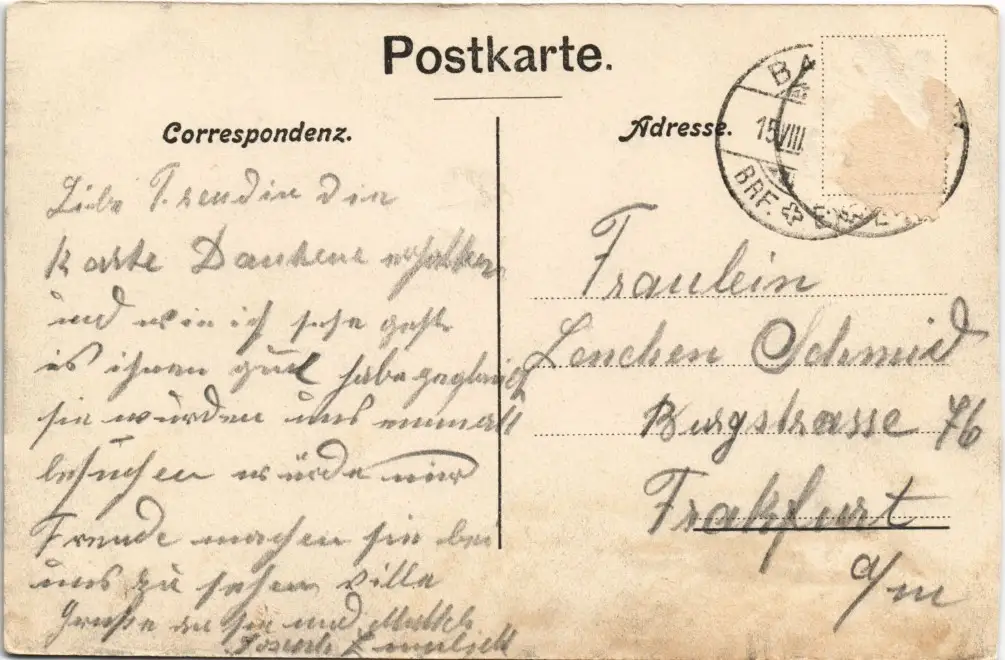 Postkarte.
Correspondenz.
Adresse.
BA
15 VIII
BRF. ✣
Liebe Freundin Die
Karte Dankend erhalten
und wie ich sehe geht
es ihnen gut habe geglaubt
sie würden uns einmal
besuchen würde mir
Freude machen sie bei
uns zu sehen Ville
Grüße an sie und Mutter
Fraulein
Lenchen Schmid
Burgstrasse 76
Frakfurt
a/m